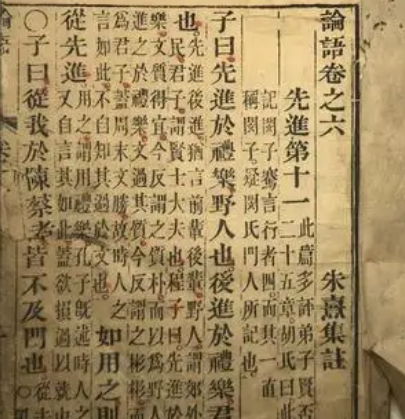 論語卷之六 朱熹集註
先進第十一 此篇多評弟子賢否
二十五章胡氏曰此
記閔子騫言行者四而其一直
稱閔子疑閔氏門人所記也
子曰先進於禮樂野人也後進於禮樂君
也 先進後進猶言前輩後輩野人謂郊外
民君子謂賢士大夫也程子曰先進於
樂文質得宜今反謂之質朴而以為野人
進之於禮樂文過其質今反謂之彬彬而
為君子蓋周末文勝故時人之
言如此不自知其過於文也 如用之則
從先進 用之謂用禮樂孔子既述時人之
又自言其如此蓋欲損過以就
○子曰從我於陳蔡者皆不及門也